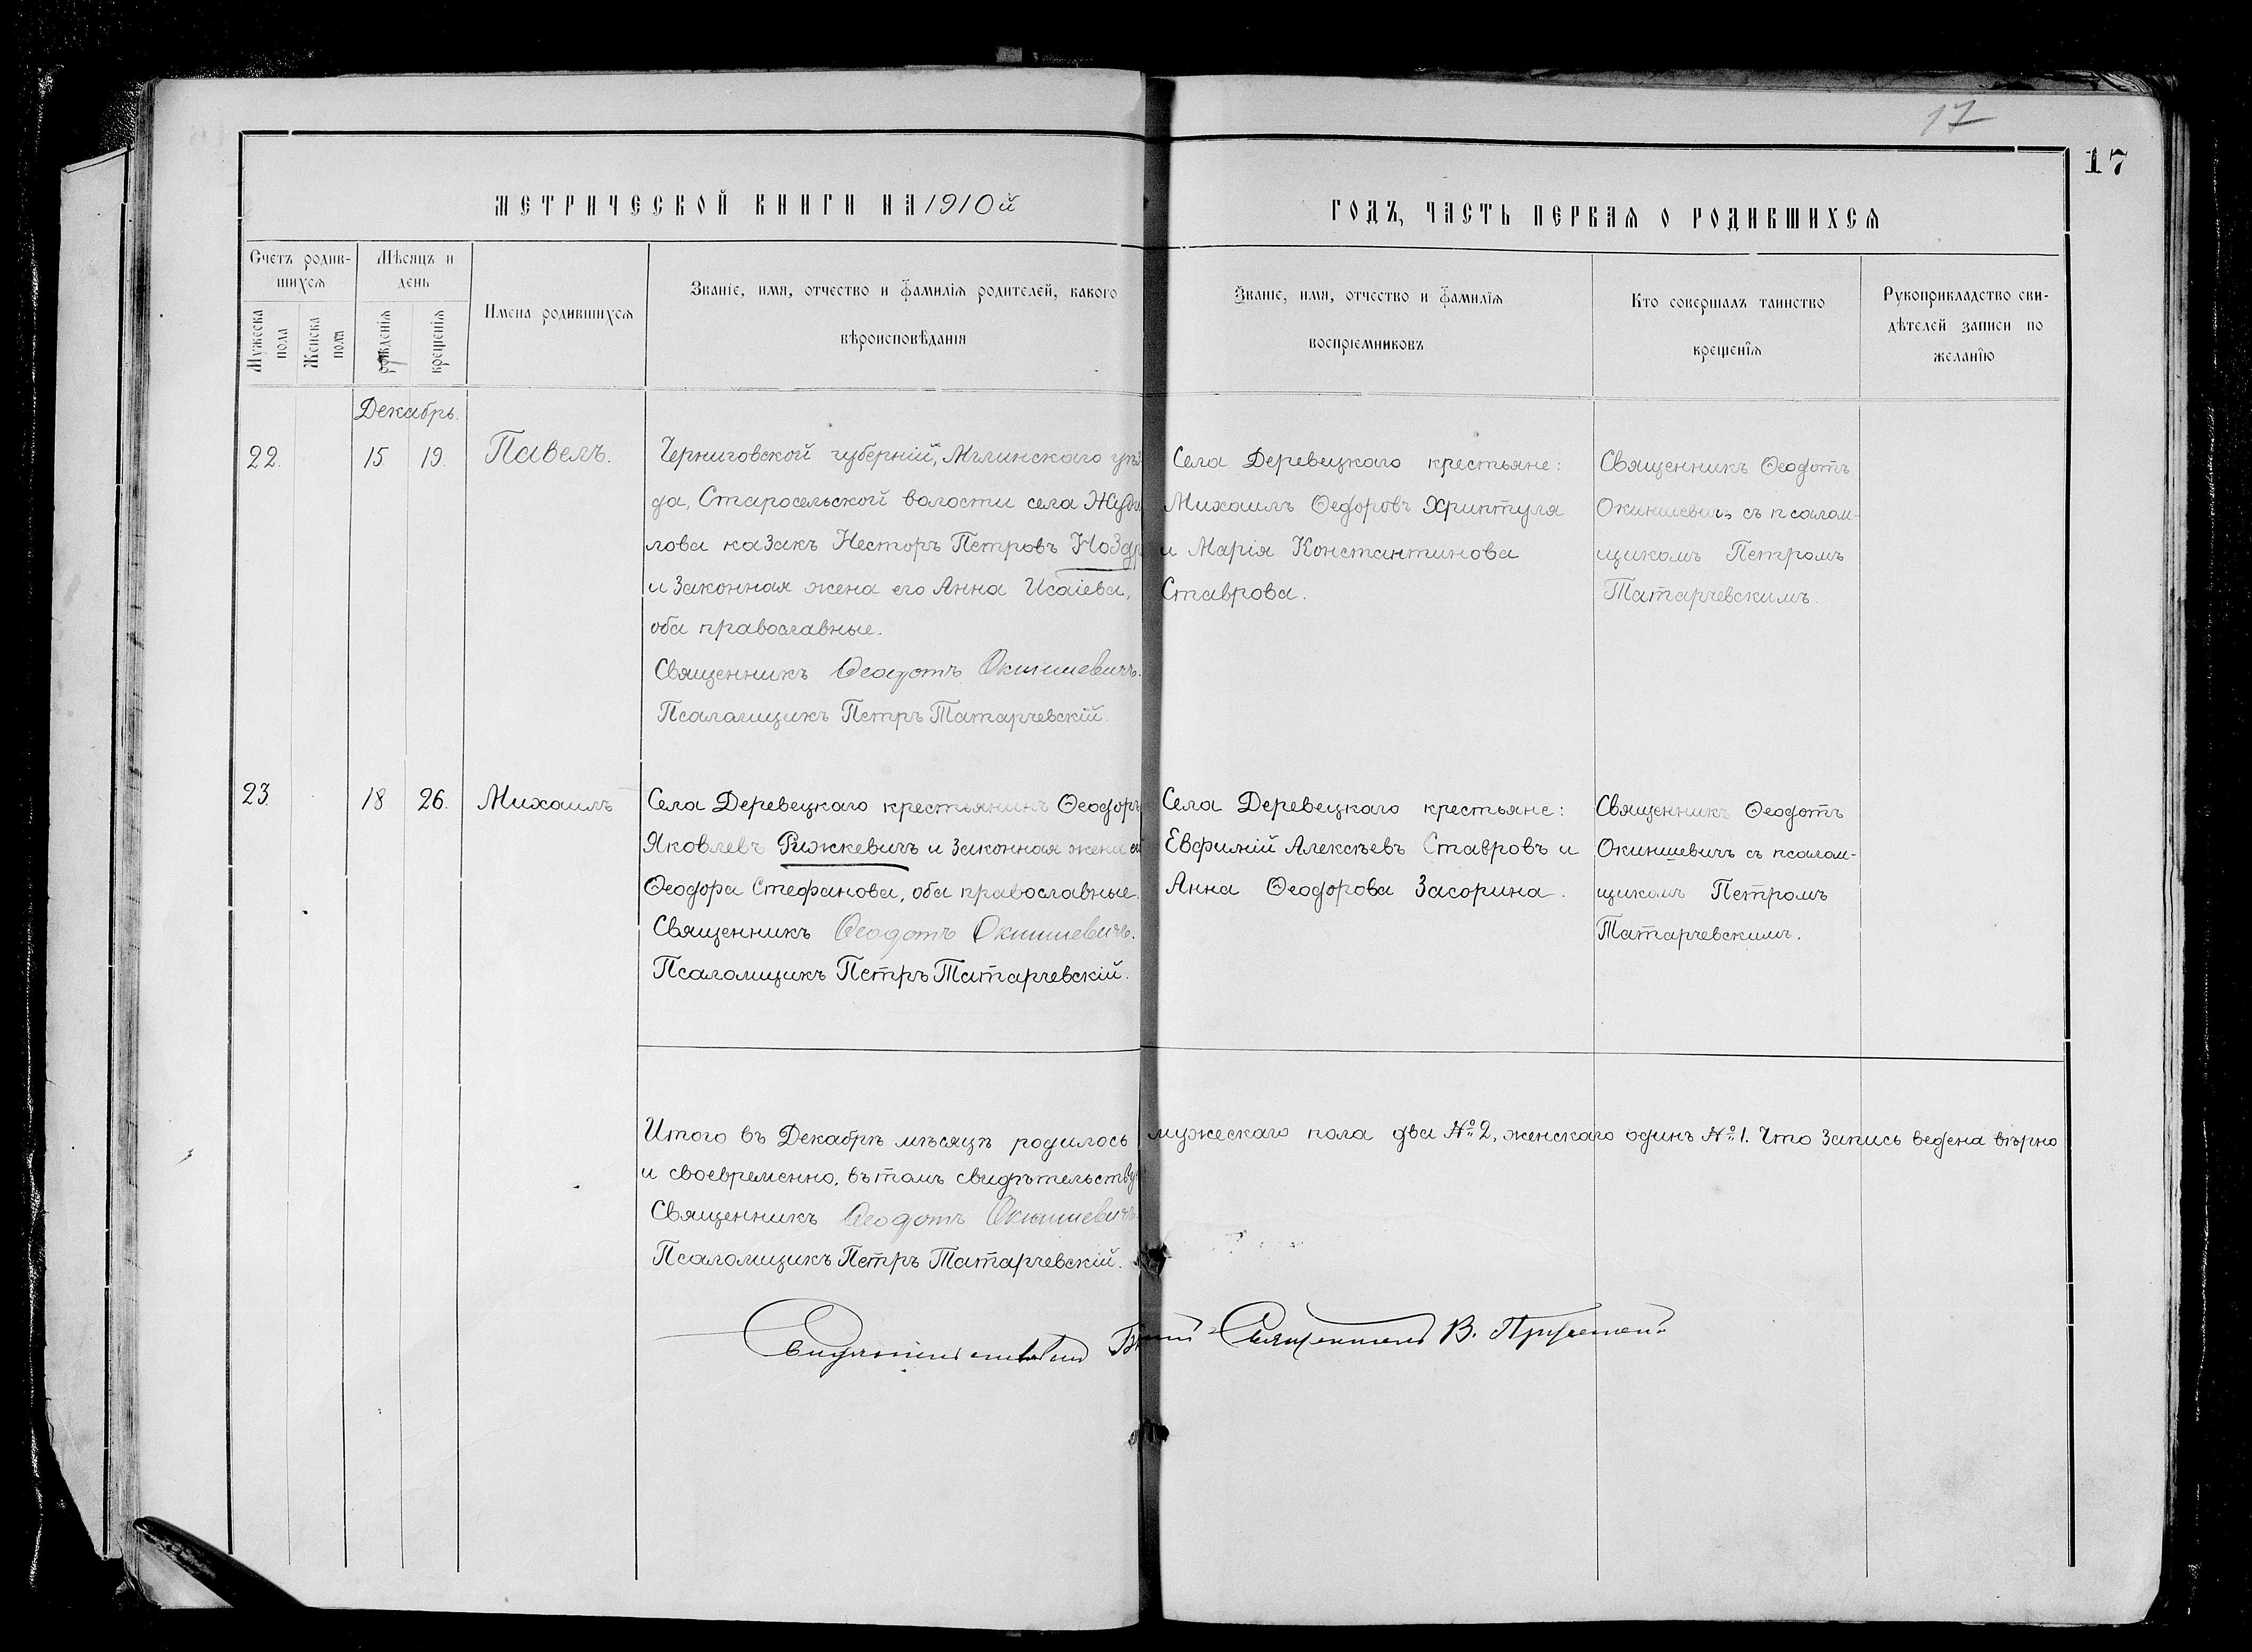 17
17
МЕТРИЧЕСКОЙ КНИГИ НА 1910й
ГОДЪ, ЧАСТЬ ПЕРВАЯ О РОДИВШИХСЯ
Счетъ родив-
шихся
Мужеска
пола
Женска
пола
Мѣсяцъ и
день
рожденія
крещенія
Имена родившихся
Званіе, имя, отчество и фамилія родителей, какого
вѣроисповѣданія
Званіе, имя, отчество и фамилія
воспріемниковъ
Кто совершалъ таинство
крещенія
Рукоприкладство сви-
дѣтелей записи по
желанію
Декабрь.
22.
15
19.
Павелъ.
Черниговской губерніи, Мглинскаго уѣз
да, Старосельской волости села Жуди
лова казакъ Несторъ Петровъ Ноздр
и законная жена его Анна Исаіева,
оба православные.
Священникъ Ѳеодотъ Окиншевичъ.
Псаломщикъ Петръ Татарчевскій.
Села Деревецкаго крестьяне:
Михаилъ Ѳедоровъ Хриптуля
и Марія Константинова
Ставрова.
Священникъ Ѳеодотъ
Окиншевичъ съ псалом-
щикомъ Петромъ
Татарчевскимъ.
23.
18
26.
Михаилъ
Села Деревецкаго крестьянинъ Ѳеодоръ
Яковлевъ Рижкевичъ и законная жена е
Ѳеодора Стефанова, оба православные.
Священникъ Ѳеодотъ Окиншевичъ.
Псаломщикъ Петръ Татарчевскій.
Села Деревецкаго крестьяне:
Евфимій Алексѣевъ Ставровъ и
Анна Ѳеодорова Засорина.
Священникъ Ѳеодотъ
Окиншевичъ съ псалом-
щикомъ Петромъ
Татарчевскимъ.
Итого въ Декабрѣ мѣсяцѣ родилось мужескаго пола два №2, женскаго одинъ №1. Что запись ведена вѣрно
и своевременно, въ томъ свидѣтельству
Священникъ Ѳеодотъ Окиншевичъ.
Псаломщикъ Петръ Татарчевскій.
Священникъ В.